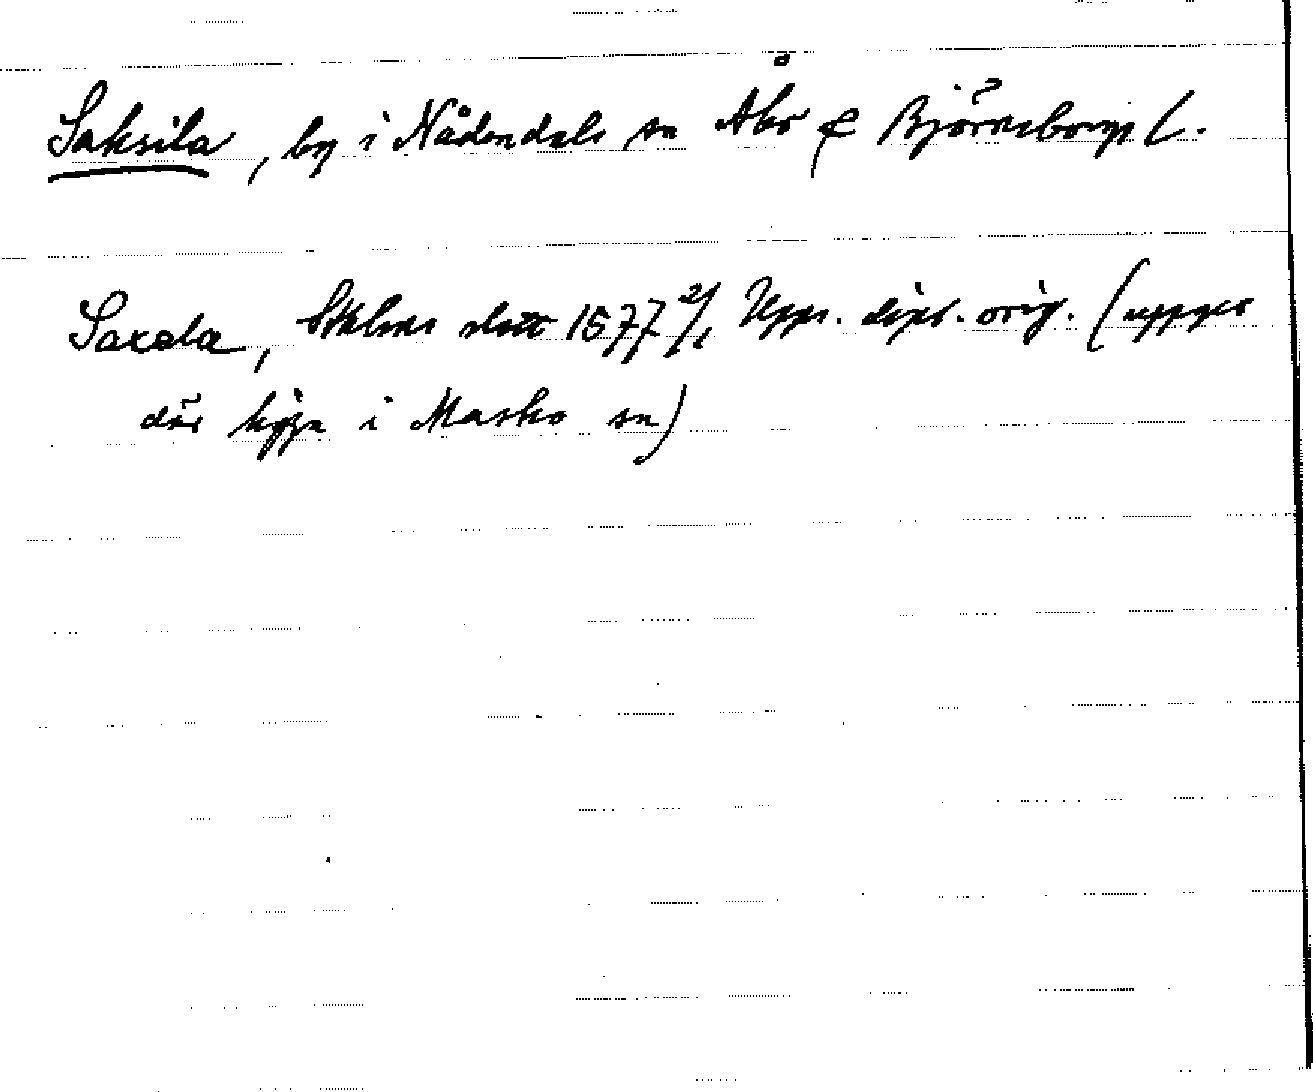 Saksila, by i Nådendals sn Åbo & Björneborgs l.
Saxala, Sthlms slott 1577 2/1 Upps. dipl. orig. (uppges
där ligga i Masko sn)